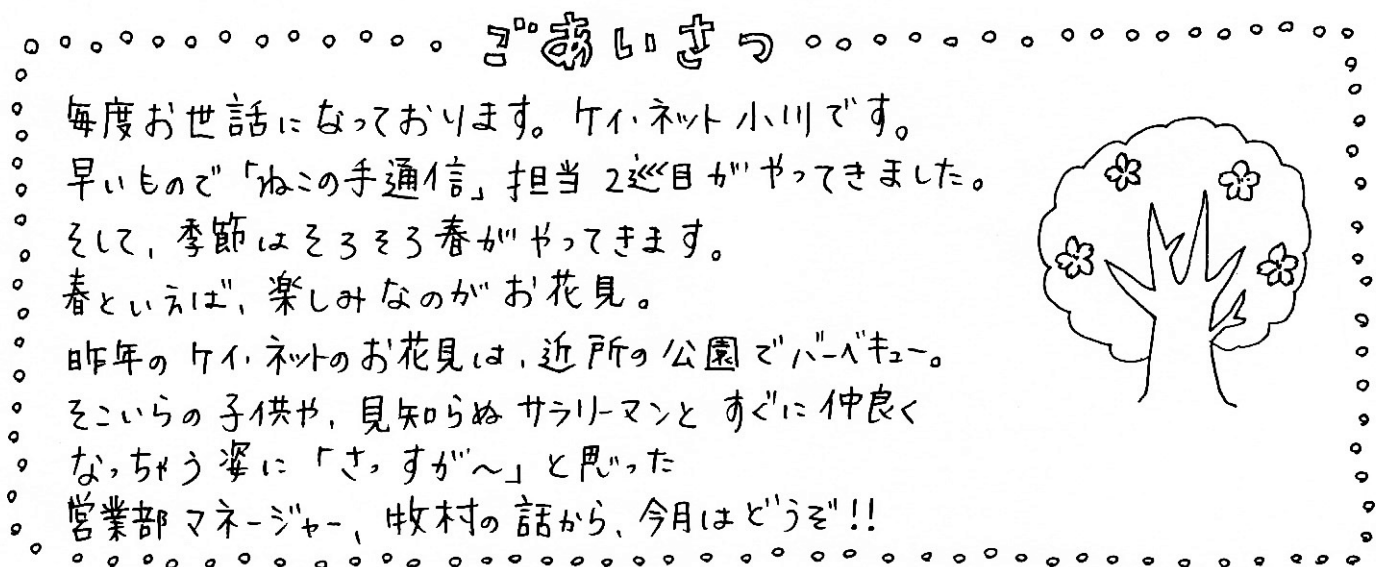 ごあいさつ
毎度お世話になっております。ケイ・ネット小川です。
早いもので「ねこの手通信」担当2巡目がやってきました。
そして、季節はそろそろ春がやってきます。
春といえば、楽しみなのがお花見。
昨年のケイ・ネットのお花見は、近所の公園でバーベキュー。
そこいらの子供や、見知らぬサラリーマンとすぐに仲良く
なっちゃう姿に「さっすが～」と思った
営業部マネージャー、牧村の話から、今月はどうぞ!!